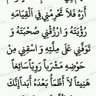 أَرَهُ فَلَا تَحْرِمْنِي فِي الْقِيَامَةِ
رُؤْيَتَهُ وَ ارْزُقْنِي صُحْبَتَهُ وَ
تَوَفَّنِي عَلَى مِلَّتِهِ وَ اسْقِنِي مِنْ
حَوْضِهِ مَشْرَبًا رَوِيًّا سَائِغًا
هَنِيئًا لَا أَظْمَأُ بَعْدَهُ أَبَدًا إِنَّكَ